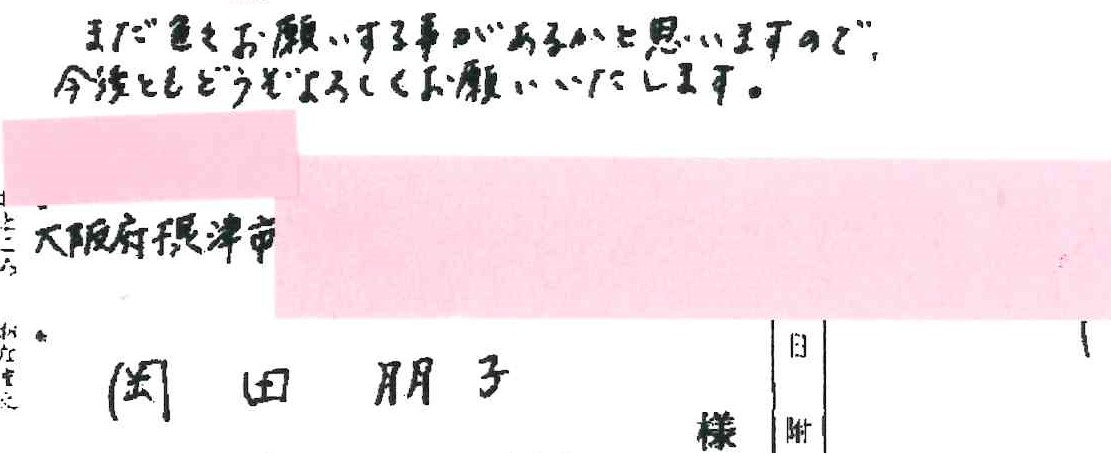 まだ色々お願いする事があるかと思いますので、
今後ともどうぞよろしくお願いいたします。
おところ
大阪府摂津市
おなまえ
岡田朋子
様
日附